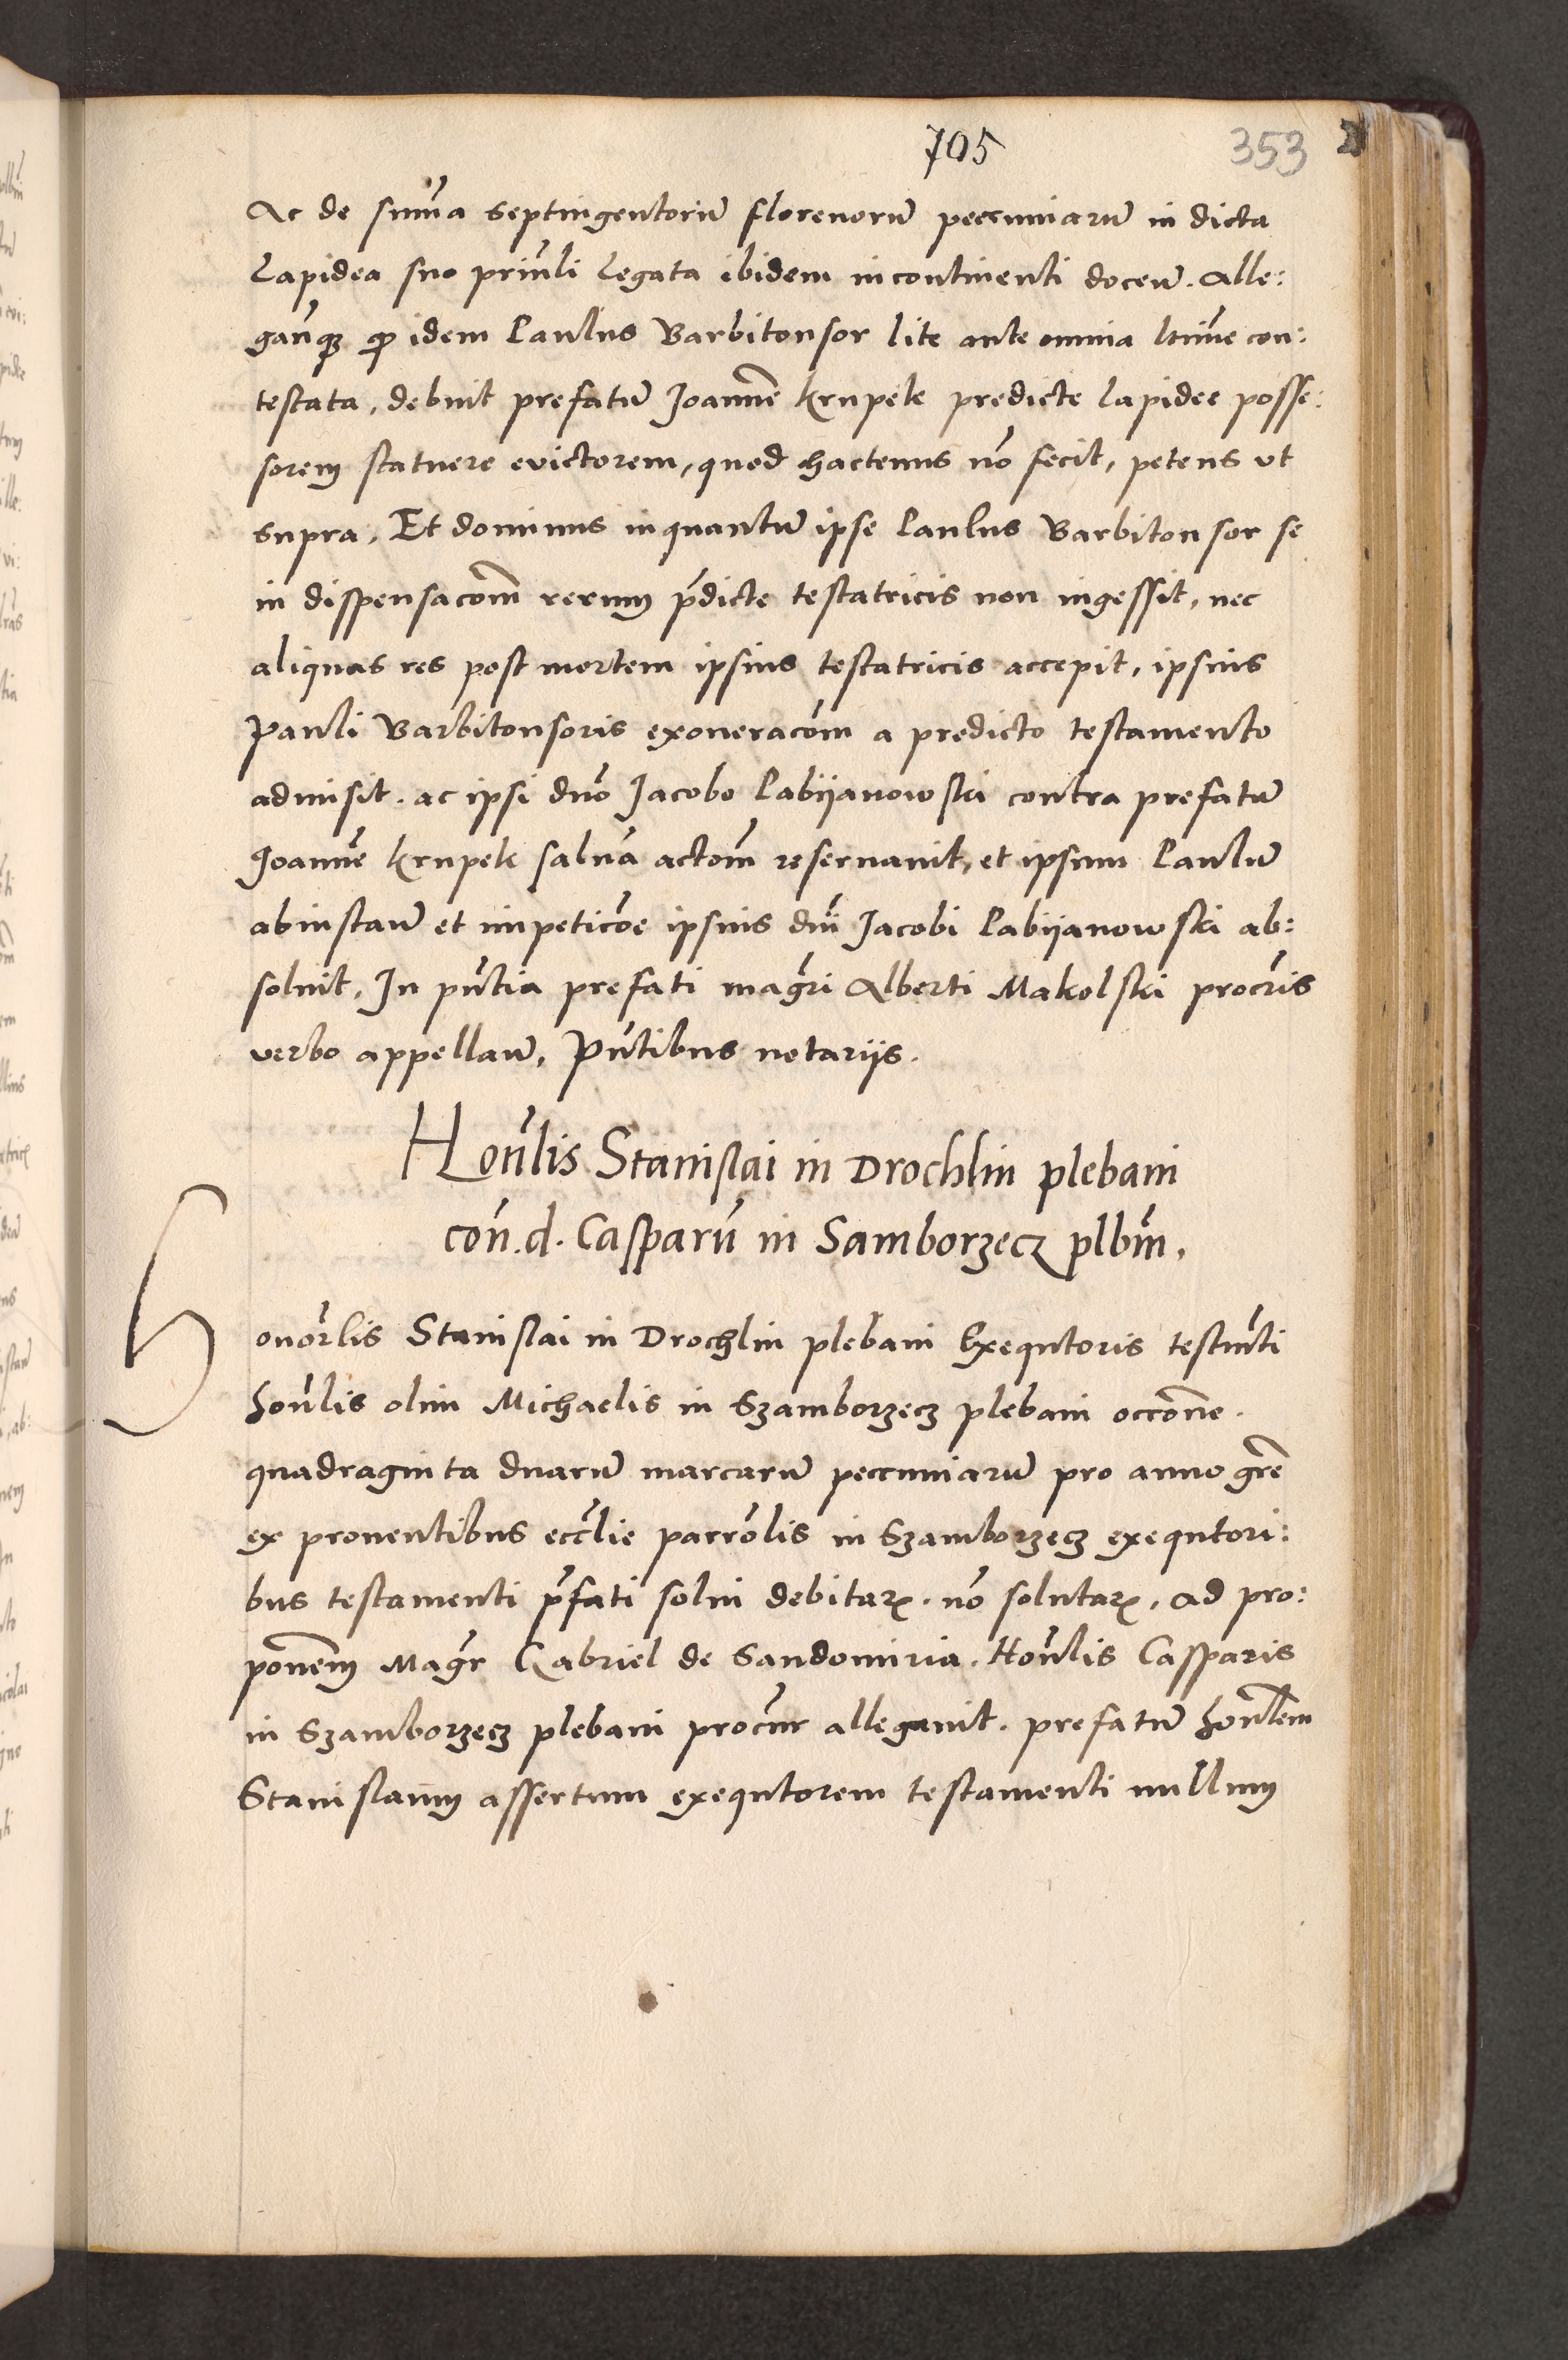 705
353
Ac de sum̄a septingentorū florenorū peccuniarū in dicta
Lapidea suo prin̄li legata ibidem incontinenti doceū. Alle:
gan̄q꜄ ꝙ idem Paulus Barbitonsor lite ante omnia ltime con:
testata, debuit prefatū Joannē Krupek predicte lapidee posse:
sorem statuere evictorem, quod hactenus nō fecit, petens ut
supra. Et dominus inquantū ipse Paulus Barbitonsor se
in dispensacom̄ rerum p̄dicte testatricis non ingessit, nec
aliquas res post mortem ipsius testatricis accepit, ipsius
Pauli Barbitonsoris exoneracōm a predicto testamento
admisit. ac ipsi dnō Jacobo Labijanowski contra prefatū
Joannē Krupek saluā actom̄ reseruauit, et ipsum Paulū
ab instaū et impeticōe ipsius dni Jacobi Labijanowski ab:
soluit. In pn̄tia prefati magr̄i Alberti Makolski procrīs
verbo appellaū. Pn̄tibus notarijs.
Hon̄lis Stanislai in Drochlin plebani
con̄.d. Casparū in Samborzecz plbm̄.
Honor̄lis Stanislai in Drochlin plebani Exequtoris testm̄ti
hon̄lis olim Michaelis in Szamborzecz plebani occōne.
quadraginta duarū marcarū peccuniarū pro anno gr̄e
ex prouentibus eccl̄ie parrōlis in Szamborzecz exequtori:
bus testamenti p̄fati solui debitaꝝ. nō solutaꝝ. ad pro:
ponem̄ Magr̄ Gabriel de Sandomiria. Hon̄lis Casparis
in Szamborzecz plebani procūr allegauit. prefatū hon̄lem
Stanislaum assertum exequtorem testamenti nullum